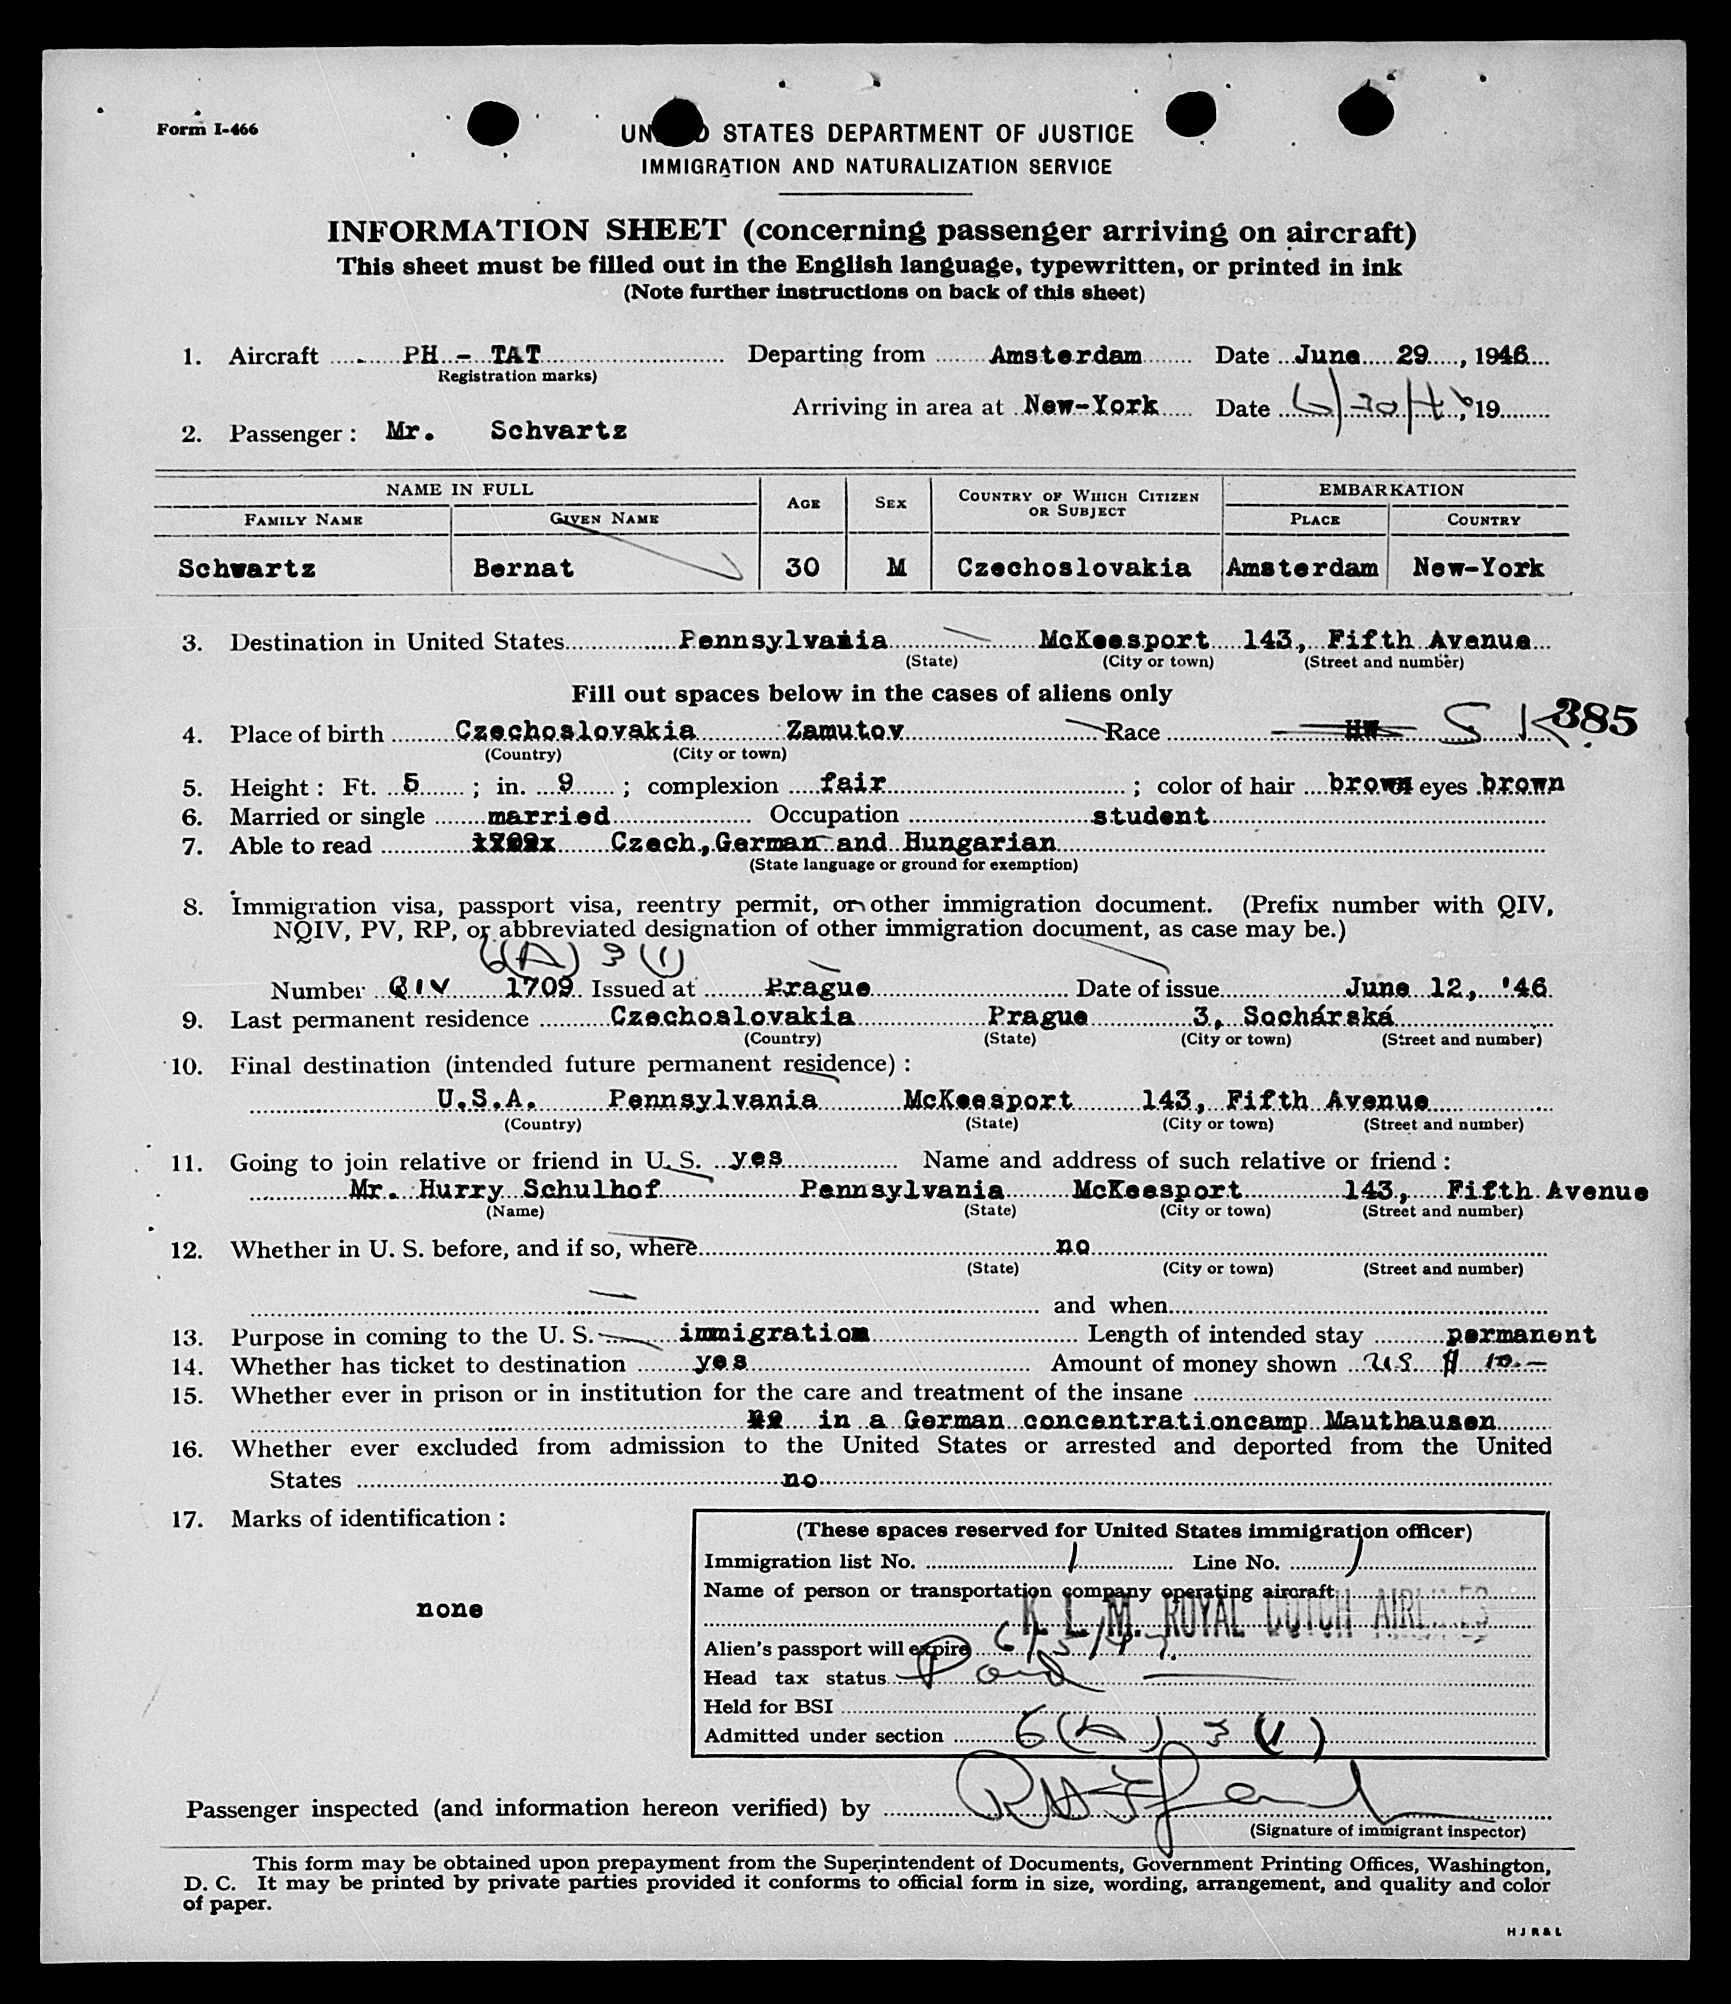 Form I-466
UNITED STATES DEPARTMENT OF JUSTICE
IMMIGRATION AND NATURALIZATION SERVICE
INFORMATION SHEET (concerning passenger arriving on aircraft)
This sheet must be filled out in the English language, typewritten, or printed in ink
(Note further instructions on back of this sheet)
1. Aircraft PH - TAT Departing from Amsterdam Date June 29, 1946
(Registration marks)
Arriving in area at New-York Date 6/30/46, 19
2. Passenger: Mr. Schvartz
NAME IN FULL AGE SEX COUNTRY OF WHICH CITIZEN OR SUBJECT EMBARKATION
FAMILY NAME GIVEN NAME PLACE COUNTRY
Schwartz Bernat 30 M Czechoslovakia Amsterdam New-York
3. Destination in United States Pennsylvania McKeesport 143, Fifth Avenue
(State) (City or town) (Street and number)
Fill out spaces below in the cases of aliens only
4. Place of birth Czechoslovakia Zamutov Race S K 385
(Country) (City or town)
5. Height: Ft. 5; in. 9; complexion fair; color of hair brown eyes brown
6. Married or single married Occupation student
7. Able to read Czech, German and Hungarian
(State language or ground for exemption)
8. Immigration visa, passport visa, reentry permit, or other immigration document. (Prefix number with QIV,
NQIV, PV, RP, or abbreviated designation of other immigration document, as case may be.)
6(A) 3 (1)
Number QIV 1709 Issued at Prague Date of issue June 12, '46
9. Last permanent residence Czechoslovakia Prague 3, Sochárská
(Country) (State) (City or town) (Street and number)
10. Final destination (intended future permanent residence):
U.S.A. Pennsylvania McKeesport 143, Fifth Avenue
(Country) (State) (City or town) (Street and number)
11. Going to join relative or friend in U. S. yes Name and address of such relative or friend:
Mr. Hurry Schulhof Pennsylvania McKeesport 143, Fifth Avenue
(Name) (State) (City or town) (Street and number)
12. Whether in U. S. before, and if so, where no
(State) (City or town) (Street and number)
and when
13. Purpose in coming to the U. S. immigration Length of intended stay permanent
14. Whether has ticket to destination yes Amount of money shown US $ 10.-
15. Whether ever in prison or in institution for the care and treatment of the insane
in a German concentrationcamp Mauthausen
16. Whether ever excluded from admission to the United States or arrested and deported from the United
States no
17. Marks of identification:
none
(These spaces reserved for United States immigration officer)
Immigration list No. 1 Line No. 1
Name of person or transportation company operating aircraft
K. L. M. ROYAL DUTCH AIRLINES
Alien's passport will expire 6/5/47.
Head tax status Paid
Held for BSI
Admitted under section 6(A) 3 (1)
Passenger inspected (and information hereon verified) by
(Signature of immigrant inspector)
This form may be obtained upon prepayment from the Superintendent of Documents, Government Printing Offices, Washington,
D. C. It may be printed by private parties provided it conforms to official form in size, wording, arrangement, and quality and color
of paper.
H J R & L